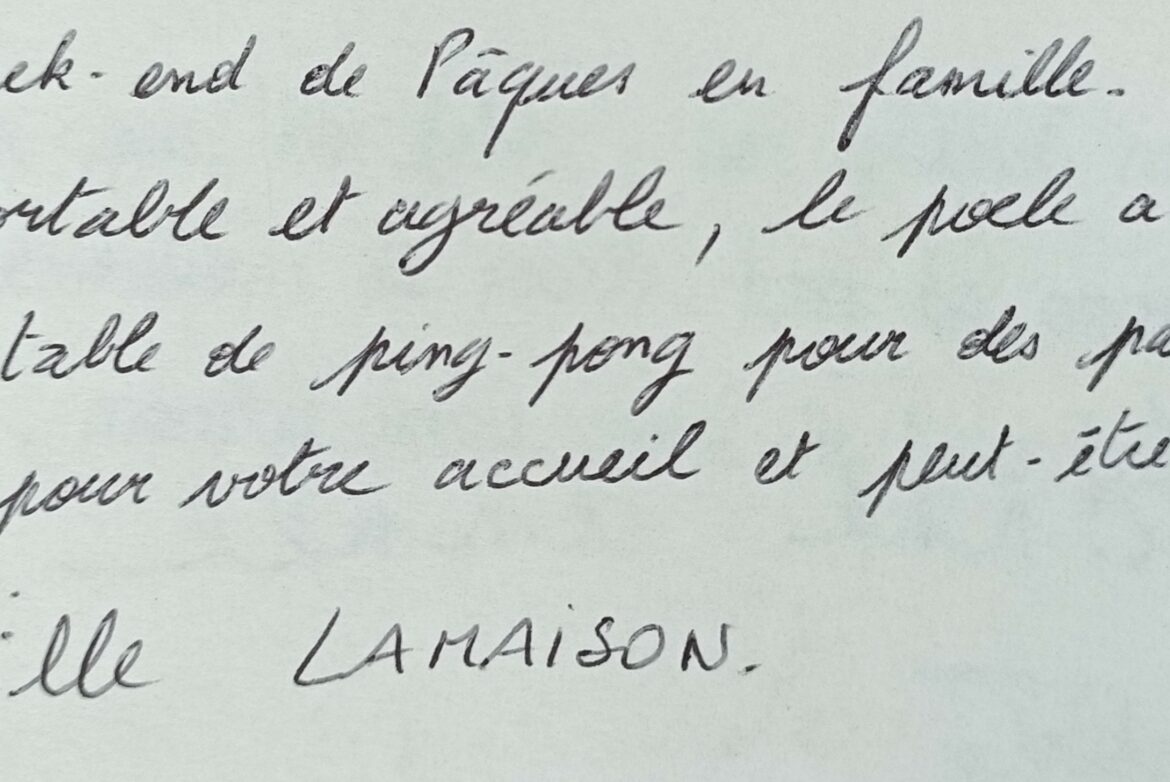 ek-end de Pâques en famille.
ortable et agréable, le poele a
table de ping-pong pour des pa
pour votre accueil et peut-être
ille LAMAISON.